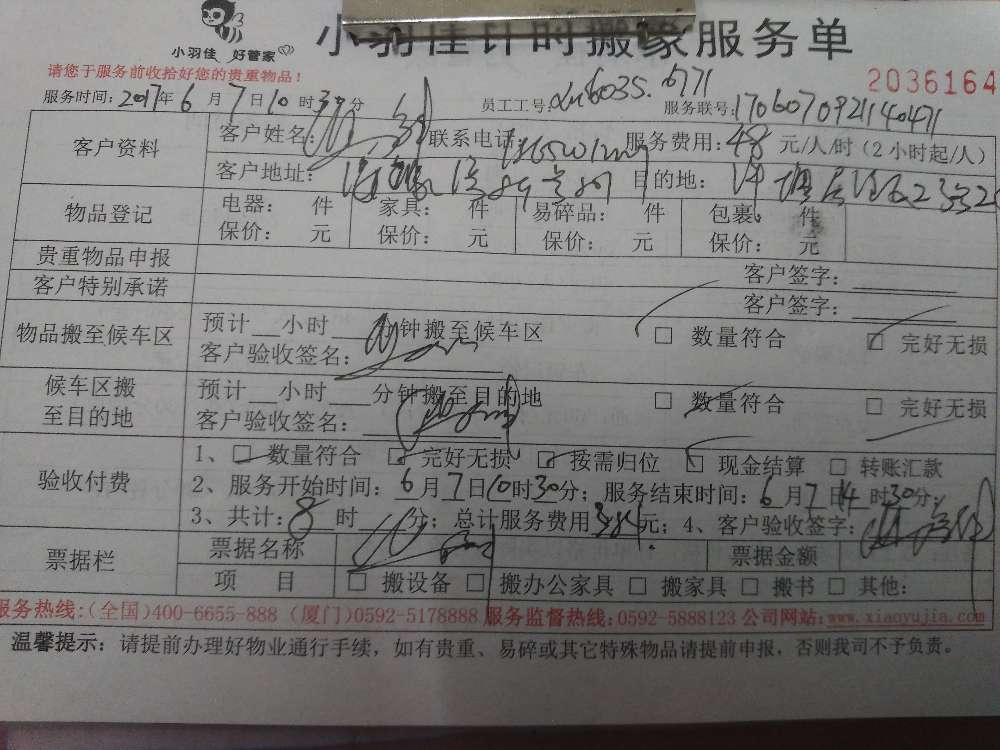 小羽佳 好管家
小羽佳计时搬家服务单
请您于服务前收拾好您的贵重物品！
2036164
服务时间：2017年6月7日10时30分 员工工号： 6035. 6771 服务联号：1706070921140471
客户资料 客户姓名： 联系电话： 服务费用：48元/人/时（2小时起/人）
客户地址： 目的地：
物品登记 电器： 件 家具： 件 易碎品： 件 包裹： 件
保价： 元 保价： 元 保价： 元 保价： 元
贵重物品申报 客户签字：
客户特别承诺 客户签字：
物品搬至候车区 预计 小时 分钟搬至候车区 □ 数量符合 □ 完好无损
客户验收签名：
候车区搬至目的地 预计 小时 分钟搬至目的地 □ 数量符合 □ 完好无损
客户验收签名：
验收付费 1、□ 数量符合 □ 完好无损 □ 按需归位 □ 现金结算 □ 转账汇款
2、服务开始时间：6月7日10时30分；服务结束时间：6月7日14时30分；
3、共计：8时 分；总计服务费用384元；4、客户验收签字：
票据栏 票据名称 票据金额
项 目 □ 搬设备 □ 搬办公家具 □ 搬家具 □ 搬书 □ 其他：
服务热线：(全国)400-6655-888 (厦门)0592-5178888 服务监督热线：0592-5888123 公司网站：www.xiaoyujia.com
温馨提示：请提前办理好物业通行手续，如有贵重、易碎或其它特殊物品请提前申报，否则我司不予负责。